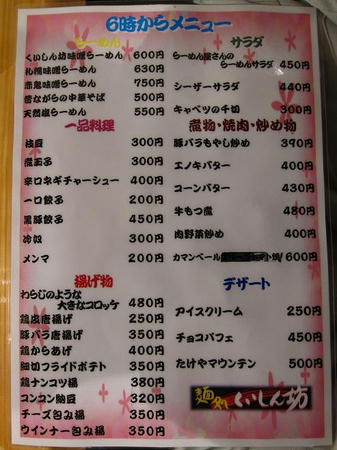 6時からメニュー
らーめん
くいしん坊味噌らーめん 600円
札幌味噌らーめん 630円
赤鬼味噌らーめん 750円
昔ながらの中華そば 500円
天然塩らーめん 550円
一品料理
枝豆 300円
煮玉子 300円
辛口ネギチャーシュー 400円
一口餃子 200円
黒豚餃子 450円
冷奴 300円
メンマ 200円
揚げ物
わらじのような
大きなコロッケ 480円
鶏皮唐揚げ 250円
豚バラ唐揚げ 350円
鶏からあげ 400円
細切フライドポテト 350円
鶏ナンコツ揚 380円
コンコン納豆 320円
チーズ包み揚 350円
ウインナー包み揚 350円
サラダ
らーめん屋さんの
らーめんサラダ 450円
シーザーサラダ 440円
キャベツの千切 300円
煮物・焼肉・炒め物
豚バラもやし炒め 390円
エノキバター 400円
コーンバター 430円
牛もつ煮 480円
肉野菜炒め 400円
カマンベール ト焼 600円
デザート
アイスクリーム 250円
チョコパフェ 450円
たけやマウンテン 500円
麺処 くいしん坊